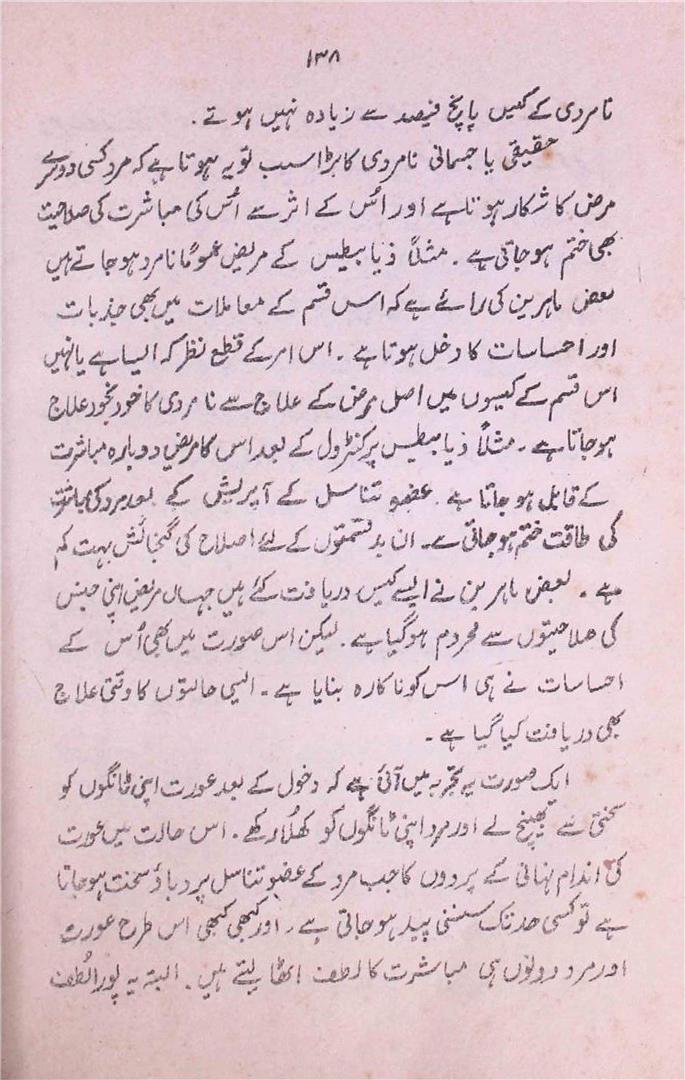 ۱۳۸
نامردی کے کیس پانچ فیصد سے زیادہ نہیں ہوتے۔
حقیقی یا جسمانی نامردی کا بڑا سبب تو یہ ہوتا ہے کہ مرد کسی دوسرے
مرض کا شکار ہوتا ہے اور اُس کے اثر سے اُس کی مباشرت کی صلاحیت
بھی ختم ہو جاتی ہے۔ مثلاً ذیابیطیس کے مریض عموماً نامرد ہو جاتے ہیں
بعض ماہرین کی رائے ہے کہ اس قسم کے معاملات میں بھی جذبات
اور احساسات کا دخل ہوتا ہے۔ اس امر کے قطع نظر کہ ایسا ہے یا نہیں
اس قسم کے کیسوں میں اصل مرض کے علاج سے نامردی کا خود بخود علاج
ہو جاتا ہے۔ مثلاً ذیابیطیس پر کنٹرول کے بعد اس کا مریض دوبارہ مباشرت
کے قابل ہو جاتا ہے۔ عضو تناسل کے آپریشن کے بعد مرد کی مباشرت
کی طاقت ختم ہو جاتی ہے۔ ان بدقسمتوں کے لئے اصلاح کی گنجائش بہت کم
ہے۔ بعض ماہرین نے ایسے کیس دریافت کئے ہیں جہاں مریض اپنی جنس
کی صلاحیتوں سے محروم ہو گیا ہے۔ لیکن اس صورت میں بھی اُس کے
احساسات نے ہی اس کو ناکارہ بنایا ہے۔ ایسی حالتوں کا وقتی علاج
بھی دریافت کیا گیا ہے۔
ایک صورت یہ تجربہ میں آئی ہے کہ دخول کے بعد عورت اپنی ٹانگوں کو
سختی سے بھینچ لے اور مرد اپنی ٹانگوں کو کھلا رکھے۔ اس حالت میں عورت
کی اندام نہانی کے پردوں کا جب مرد کے عضو تناسل پر دباؤ سخت ہو جاتا
ہے تو کسی حد تک سنسنی پیدا ہو جاتی ہے۔ اور کبھی کبھی اس طرح عورت
اور مرد دونوں ہی مباشرت کا لطف اٹھا لیتے ہیں۔ البتہ یہ پورا لُطف